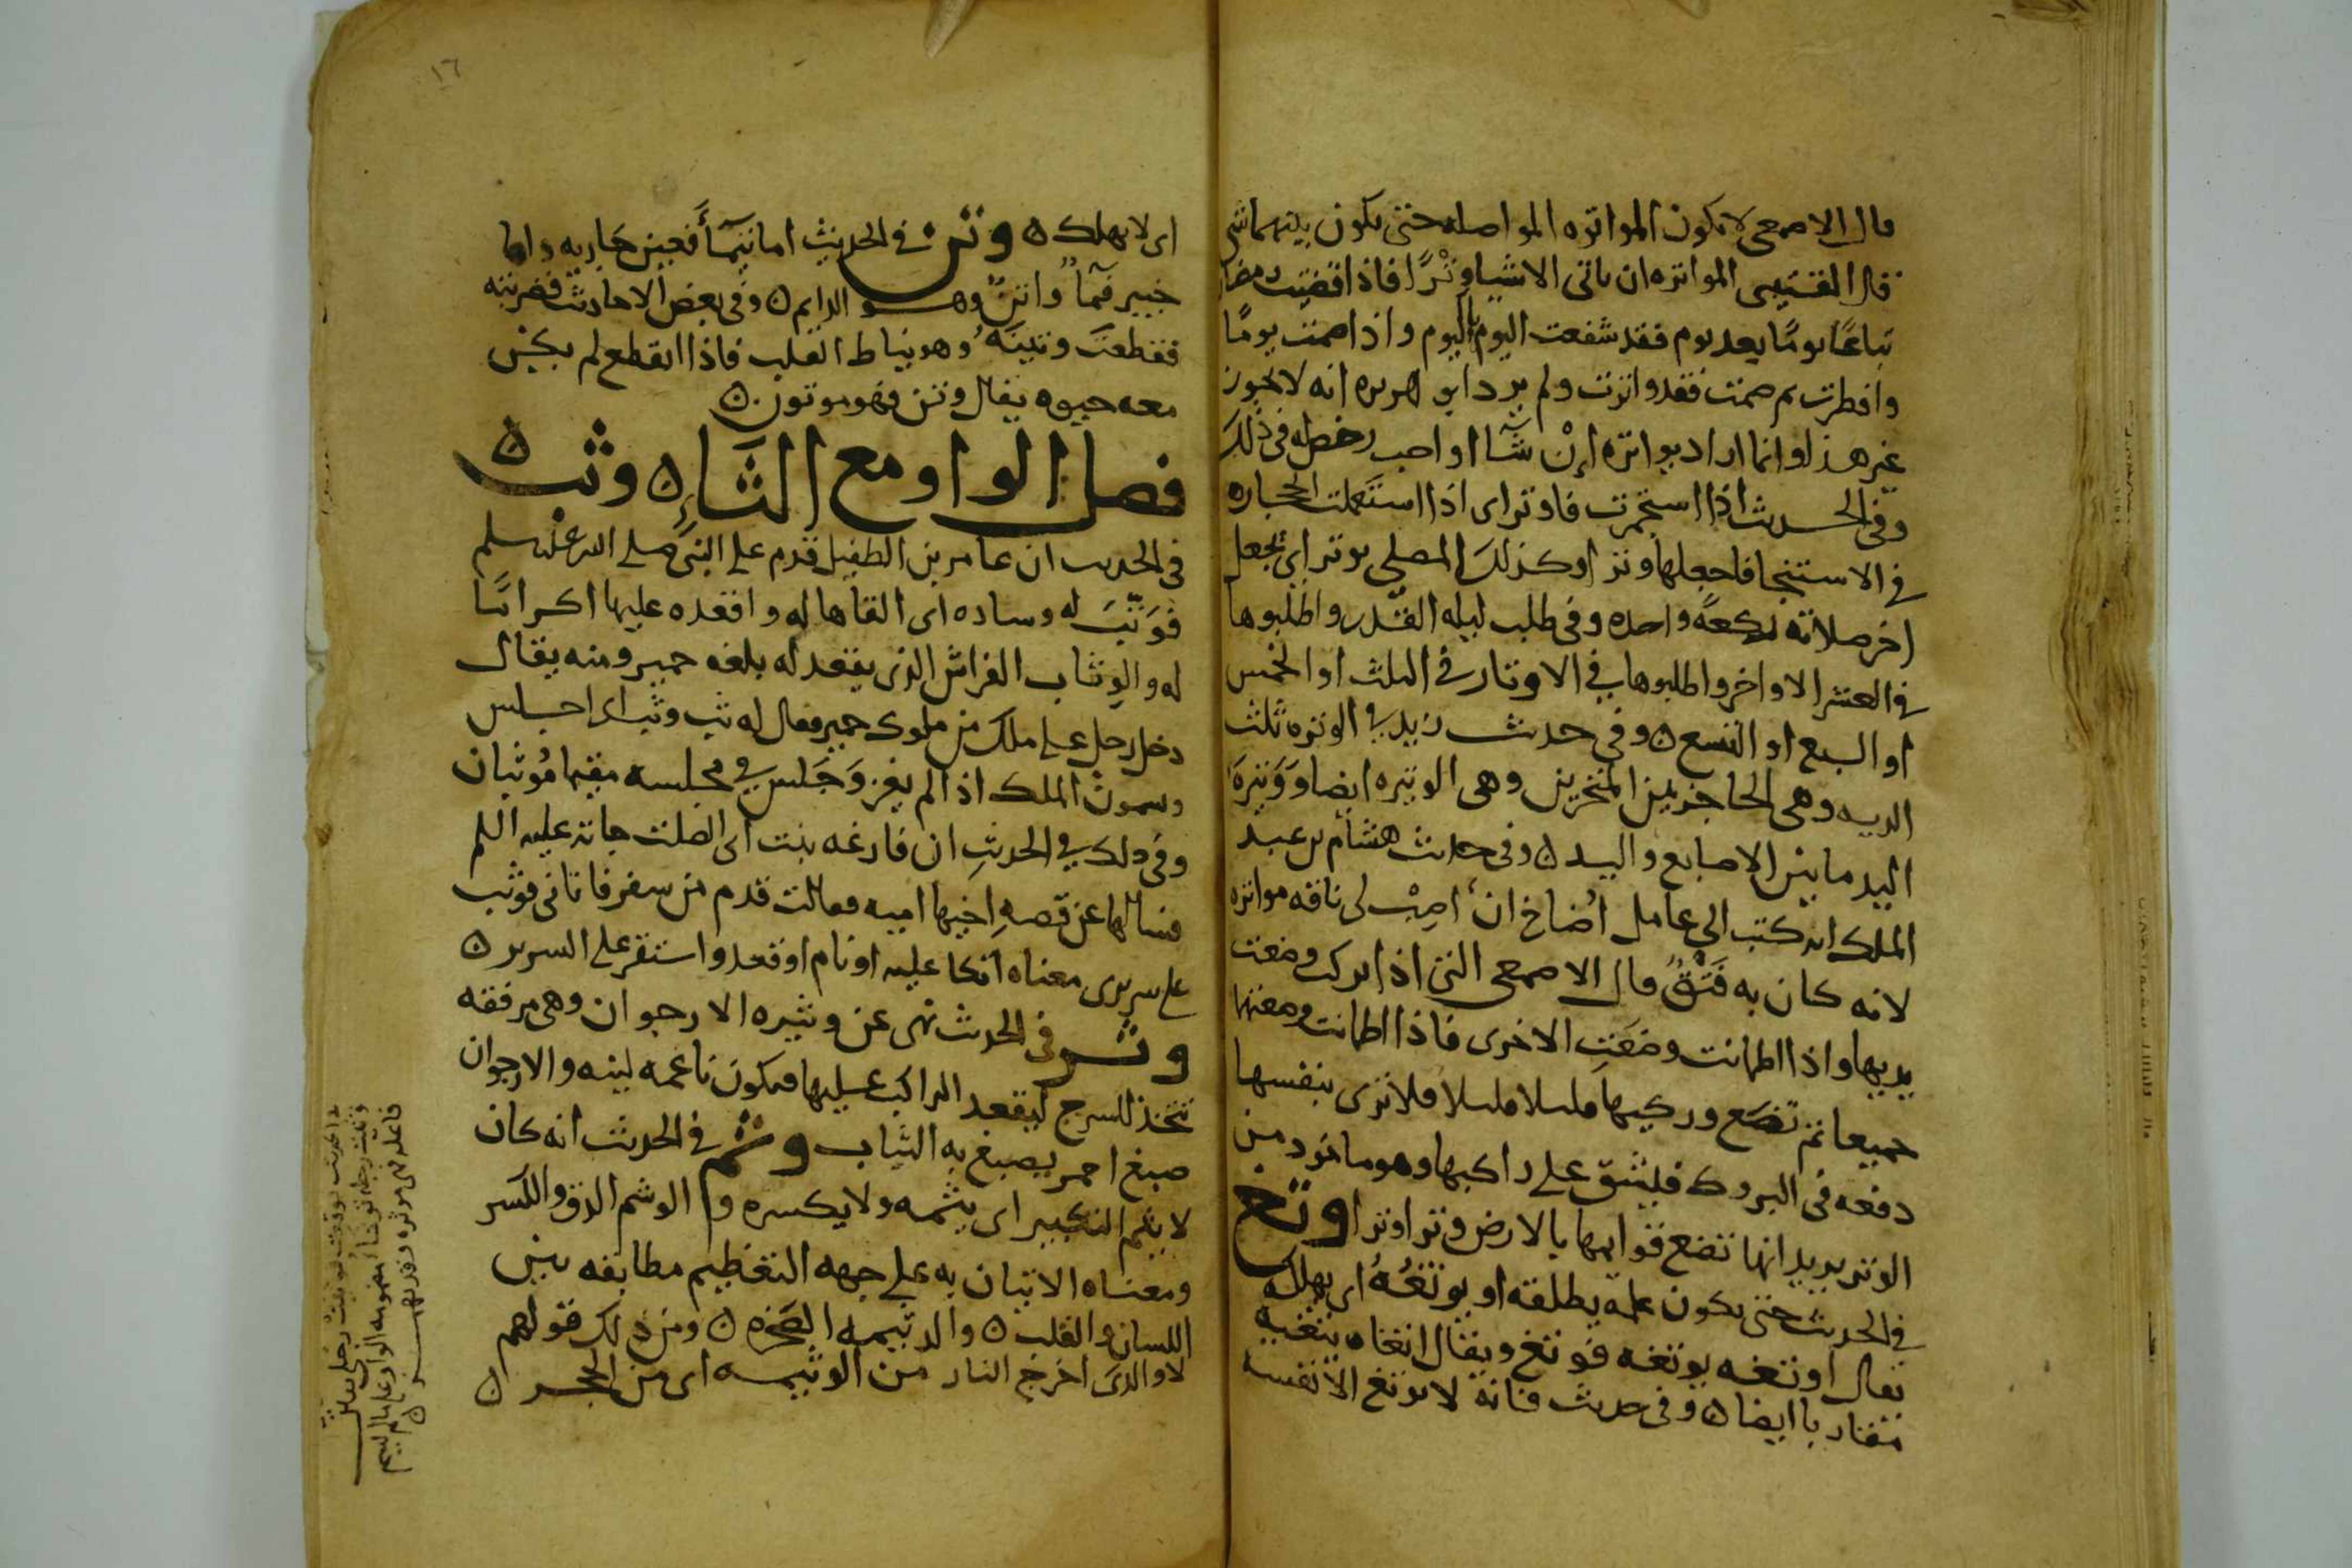 قال الاصمعى لا تكون المواتره المواصله حتى يكون بينهما شى
قال القتيبى المواتره ان ياتى الاشيا وترًا فاذا قضيت رمضان
تباعًا يومًا بعد يوم فقد شفعت اليوم باليوم واذا صمت يومًا
وافطرت ثم صمت فقد واترت ولم يرد ابو هريره انه لا يجوز
غير هذا وانما اراد يواتره اِنْ شآا او احب رخص له فى ذلك
وفى الحديث اذا استجمرت فاوتر اى اذا استعملت الحجاره
فى الاستنجا فاجعلها وترا وكذلك المصلى يوتر اى يجعل
اخر صلاته ركعةً واحده وفى طلب ليله القدر واطلبوها
فى العشر الاواخر واطلبوها فى الاوتار فى الثلث او الخمس
او السبع او التسع ه وفى حديث زيد فى الوتره ثلث
الديه وهى الحاجز بين المنخرين وهى الوتيره ايضا ووَتيرَة
اليد ما بين الاصابع واليد ه وفى حديث هشام بن عبد
الملك انه كتب الى عامل اُضاخ ان اَصِبْ لى ناقه مواتره
لانه كان به فَتْقٌ قال الاصمعى التى اذا بركت وضعت
يديها واذا اطمانت وضَعَتِ الاخرى فاذا اطمانت وضعتها
جميعا ثم تَضَع وركيها قليلا قليلا فلا تزى بنفسها
دفعه فى البروك فيشق على راكبها وهو ماخوذ من
الوتر يريد انها تضع قوايمها بالارض وترا وترا وتغ
فى الحديث حتى يكون عمله يطلقه او يوتغُهُ اى يهلك
يقال اوتغه يوتغه فوتغ ويقال اتغاه يتغيه
متقاربا ايضا ه وفى حديث فانه لا يوتغ الا نفسه
اى لا يهلك ه وتن فى الحديث اما تيمآ فعين جاريه واما
خيبر فمآ واتن وهو الدايم ه وفى بعض الاحاديث فضربته
فقطعت وتينَهُ وهو نياط القلب فاذا انقطع لم يكن
معه حيوه يقال وتن فهو موتون ه
فصل الواو مع الثاءِ ه وثب ه
فى الحديث ان عامر بن الطفيل قدم على النبى صلى الله عليه وسلم
فوَثَّبَ له وساده اى القاها له واقعده عليها اكرامًا
له والوِثاب الفراش الذى يقعد له بلغه حمير ومنه يقال
دخل رجل على ملك من ملوك حمير فقال له ثِب وثب اى اجلس
ويسمون الملك اذا لم يغز وَجَلس فى مجلسه مقيما مُوثبان
وفى ذلك فى الحديث ان فارغه بنت ابى الصلت جاته عليه السلم
فسالها عن قصهِ اخيها اميه فقالت قدم من سفر فاتانى فوثب
على سريرى معناه اتكا عليه او نام او قعد واستقر على السرير ه
وثر فى الحديث نهى عن وثيره الارجوان وهى مرفقه
تتخذ للسرج ليقعد الراكب عليها فتكون ناعمه لينه والارجوان
صبغ احمر يصبغ به الثياب وثم فى الحديث انه كان
لا يثم التكبير اى يثمه ولا يكسره والوشم الدق والكسر
ومعناه الاتيان به على جهه التعظيم مطابقه بين
اللسان والقلب ه والوثيمه الصخره ه ومن ذلك قولهم
لا والذى اخرج النار من الوثيمه اى من الحجر ه
١٦